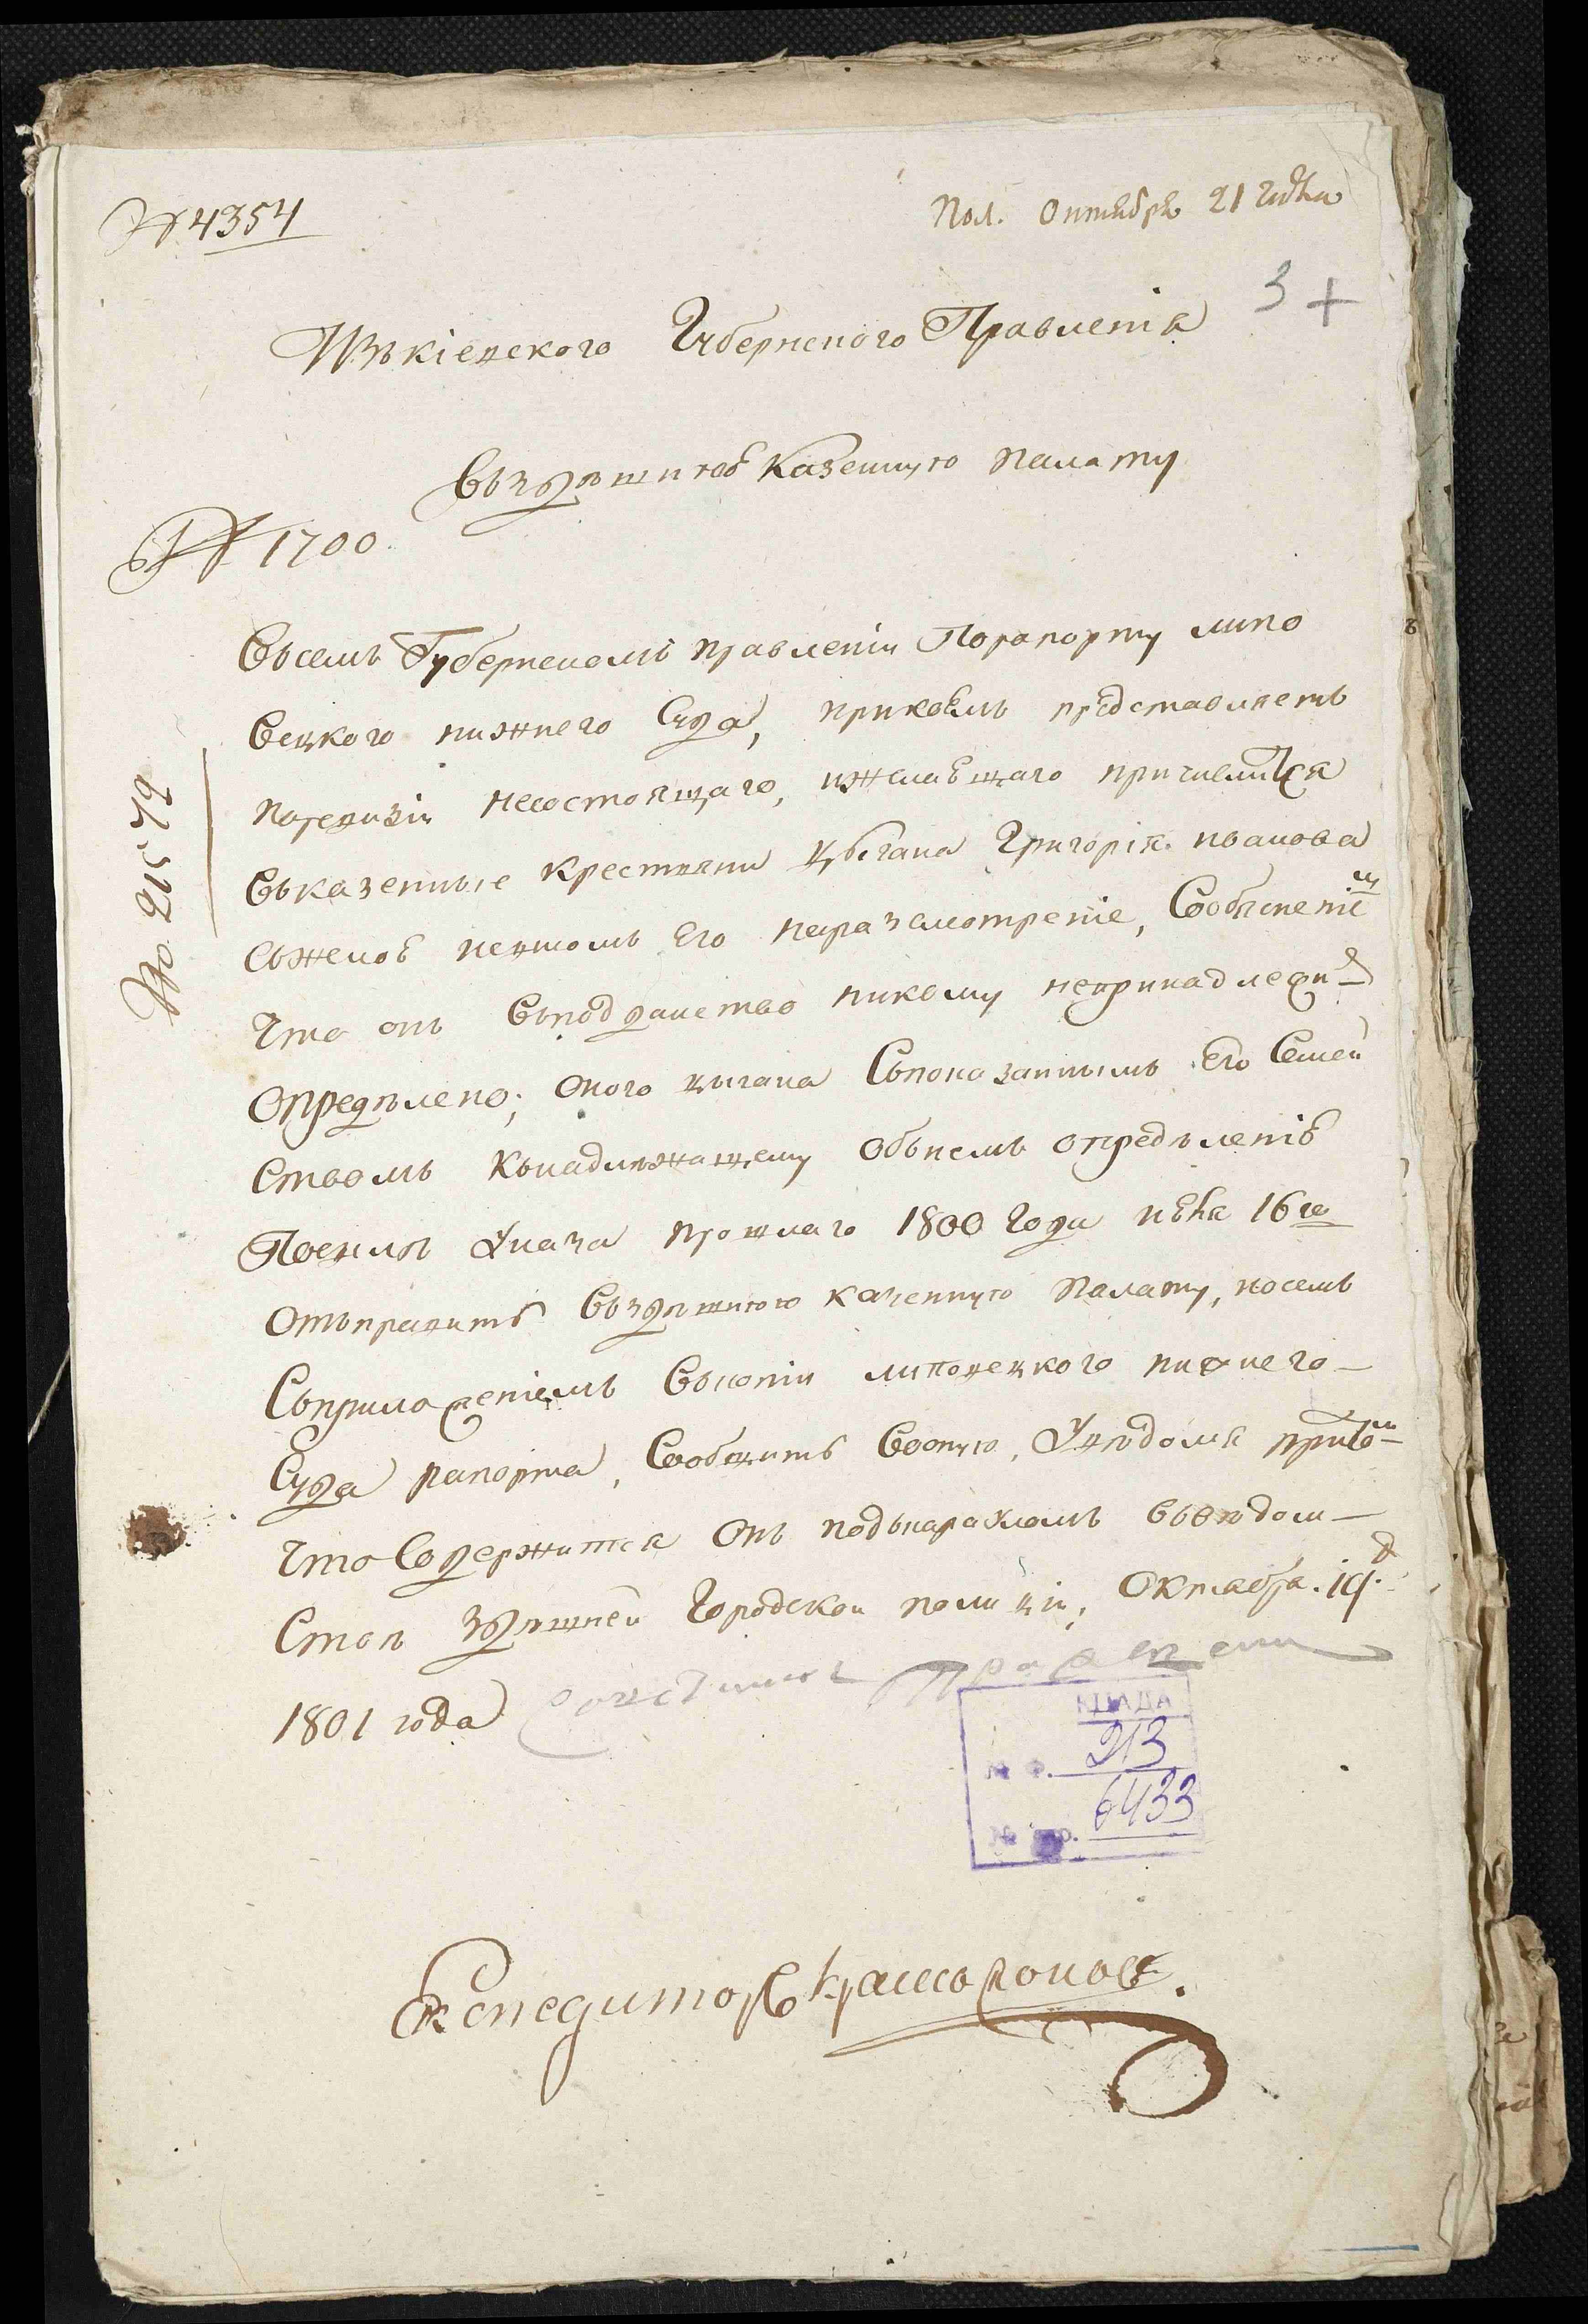 № 4354
Пол. Октября 21 1801 года
3 +
Изъ кіевского Губернского Правленія
Въ здѣшнюю Казенную палату
№ 1700
По 215 79
Въ семъ Губернскомъ правленіи По рапорту липо
вецкого нижнего Суда, при коемъ представляетъ
по ревизіи несостоящаго, и желающаго причислится
Въ казенные крестьяни цыгана Григорія иванова
съ женою и детмы Его на разсмотреніе, Собясненіемъ
Что онъ Въ подданство никому непринадлежи
Опредѣлено; Оного цыгана Съ показаннымъ Его Семей
Ствомъ Къ надлѣжащему Объ немъ определѣнію
По силѣ Указа прошлаго 1800 Года июня 16го
Отъправить Въ здѣшнюю казенную Палату, и о семъ
Съ приложеніемъ Въ копіи липовецкого нижнего
Суда рапорта, Сообщить Въ оную, Увѣдомя при томъ
Что Содержится Онъ подъ карауломъ въ вѣдом
Стве здѣшней Городской полиціи, Октября 19 д
1801 года
КЦАДА
№ ф. 213
№ 6433
Экспедиторъ